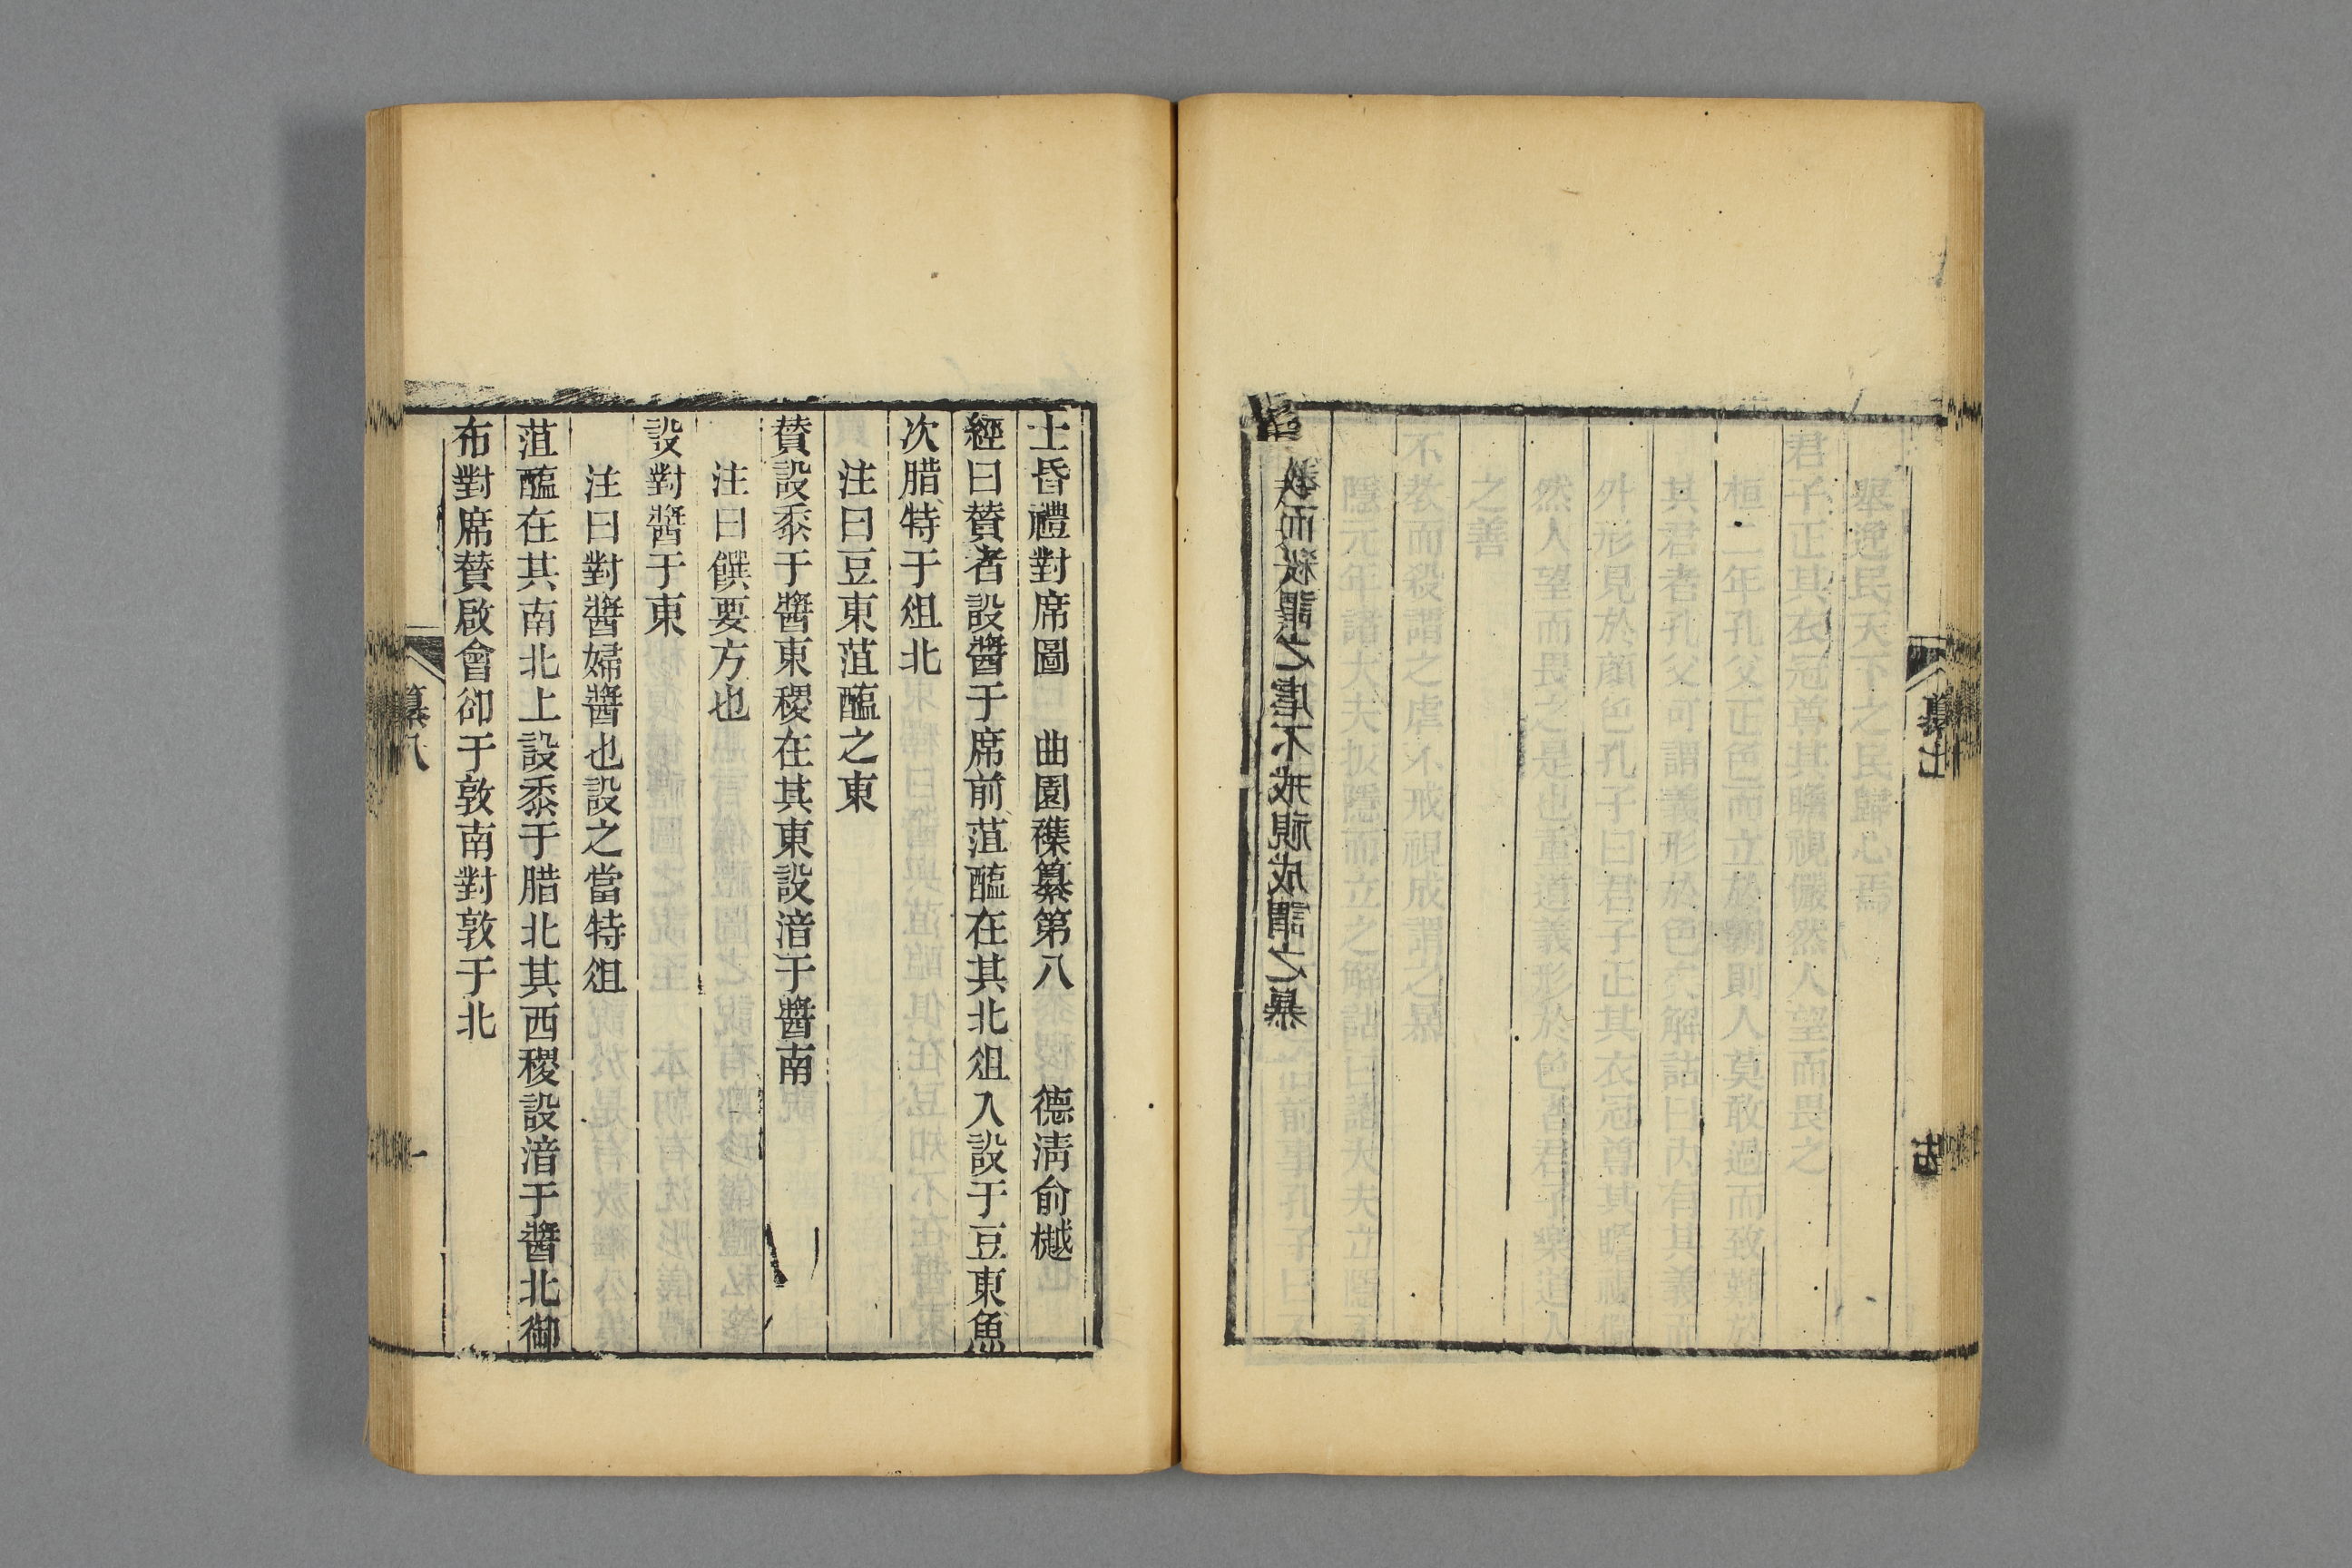 舉逸民天下之民歸心焉
君子正其衣冠尊其瞻視儼然人望而畏之
桓二年孔父正色而立於朝則人莫敢過而致難於
其君者孔父可謂義形於色矣解詁曰內有其義而
外形見於顏色孔子曰君子正其衣冠尊其瞻視儼
然人望而畏之是也重道義形於色者君子樂道人
之善
不教而殺謂之虐不戒視成謂之暴
隱元年諸大夫扳隱而立之解詁曰諸大夫立隱不
教而殺謂之虐不戒視成謂之暴
纂七
士昏禮對席圖 曲園襍纂第八 德淸俞樾
經曰贊者設醬于席前菹醢在其北俎入設于豆東魚
次腊特于俎北
注曰豆東菹醢之東
贊設黍于醬東稷在其東設湆于醬南
注曰饌要方也
設對醬于東
注曰對醬婦醬也設之當特俎
菹醢在其南北上設黍于腊北其西稷設湆于醬北御
布對席贊啟會卻于敦南對敦于北
纂八
一